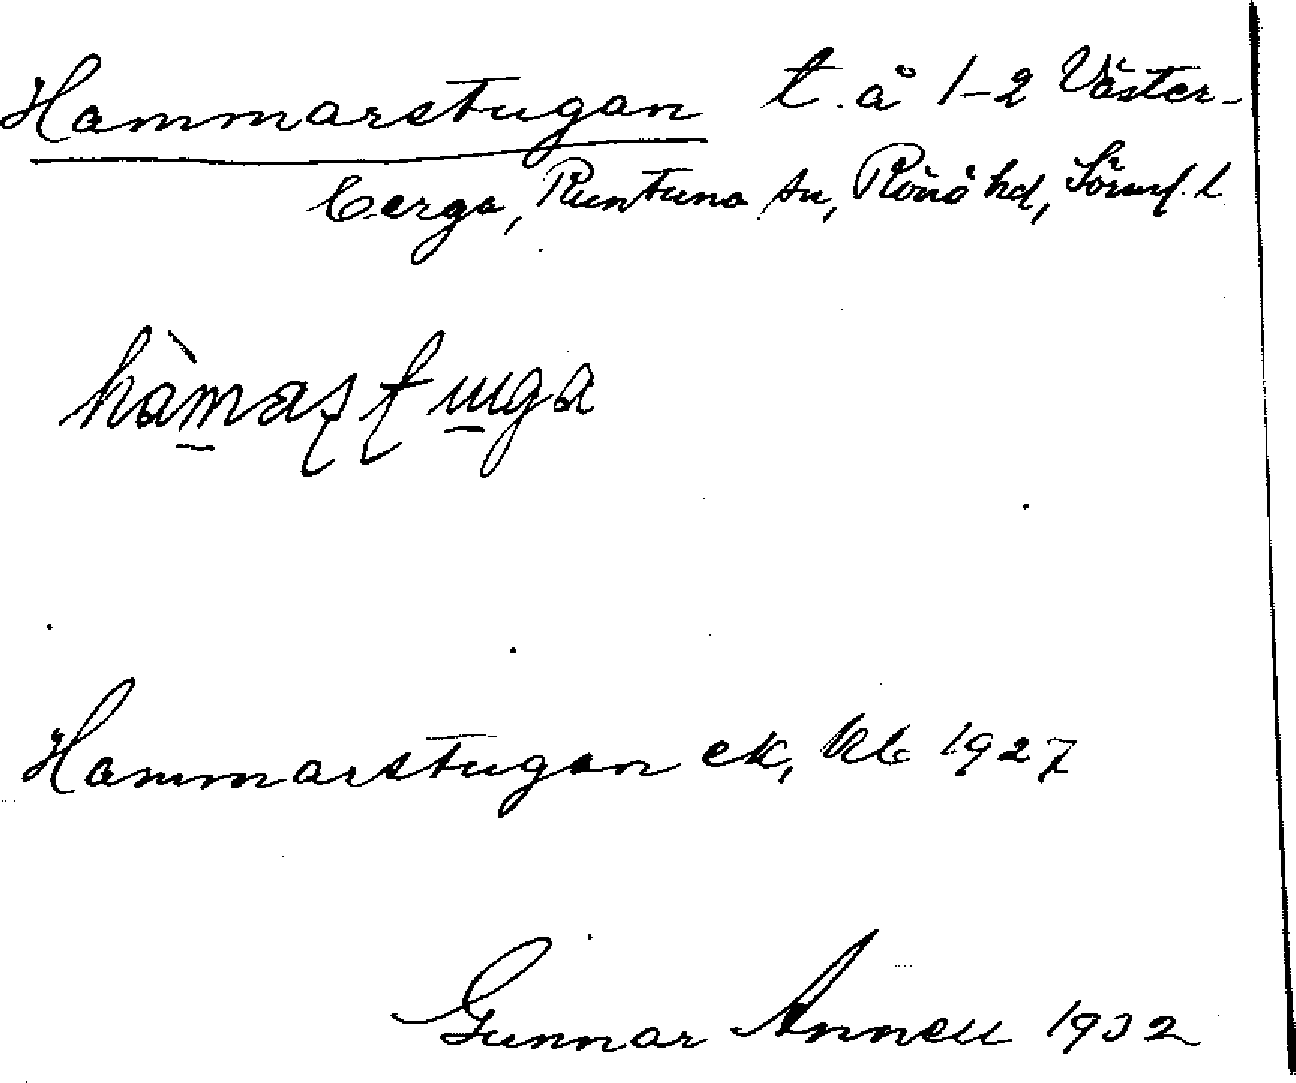 Hammarstugan t. å 1-2 Väster-
berga, Runtuna sn, Rönö hd, Sörml. l
hàmaʂʈuga
Hammarstugan ek, 1927
Gunnar Annell 1932